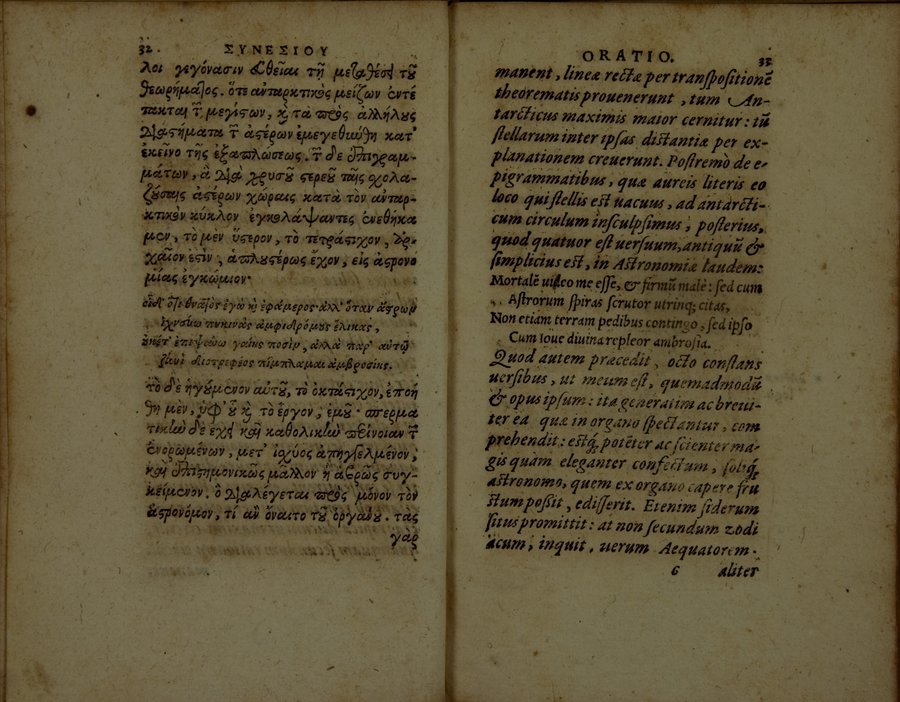 32. ΣΥΝΕΣΙΟΥ
λοι γεγόνασιν εὐθεῖαι τῇ μεταθέσει τοῦ
θεωρήματος. ὅτε ἀνταρκτικὸς μείζων ἐντέ
τακται τῶν μεγίστων, καὶ τὰ πρὸς ἀλλήλους
διαστήματα τῶν ἀστέρων ἐμεγεθύνθη κατ'
ἐκεῖνο τῆς ἐξαπλώσεως. τῶν δὲ ἐπιγραμ-
μάτων, ἃ διὰ χρυσοῦ στερεοῦ ταῖς σχολα-
ζούσαις ἀστέρων χώραις κατὰ τὸν ἀνταρ-
κτικὸν κύκλον ἐγκολάψαντες ἐνεθήκα
μεν, τὸ μὲν ὕστερον, τὸ τετράστιχον, ἀρ-
χαῖόν ἐστιν, ἁπλουστέρως ἔχον, εἰς ἀστρονο
μίας ἐγκώμιον·
οἶδ' ὅτι θνατὸς ἐγὼ καὶ ἐφάμερος ἀλλ' ὅταν ἄστρων
ἰχνεύω πυκινὰς ἀμφιδρόμους ἕλικας,
οὐκέτ' ἐπιψαύω γαίης ποσὶν, ἀλλὰ παρ' αὐτῷ
ζηνὶ διοτρεφέος πίμπλαμαι ἀμβροσίης.
τὸ δὲ ἡγούμενον αὐτοῦ, τὸ ὀκτάστιχον, ἐποιή
θη μὲν, ὑφ' οὗ καὶ τὸ ἔργον, ἐμοῦ· σπερμα
τικὴν δὲ ἔχει καὶ καθολικὴν περίνοιαν τῶν
ἐνορωμένων, μετ' ἰσχύος ἀπηγγελμένον,
καὶ ἐπιστημονικῶς μᾶλλον ἢ ἁβρῶς συγ-
κείμενον. ὃ διαλέγεται πρὸς μόνον τὸν
ἀστρονόμον, τί ἂν ὄναιτο τοῦ ὀργάνου. τὰς
γὰρ
ORATIO. 33
manent, lineæ rectæ per transpositionē
theorematis prouenerunt, tum An-
tarcticus maximis maior cernitur: tū
stellarum inter ipsas distantiæ per ex-
planationem creuerunt. Postremò de e-
pigrammatibus, quæ aureis literis eo
loco qui stellis est uacuus, ad antarcti-
cum circulum insculpsimus, posterius,
quod quatuor est uersuum, antiquū &
simplicius est, in Astronomiæ laudem:
Mortalē uideo me esse, & firmū male: sed cum
Astrorum spiras scrutor utrinq; citas,
Non etiam terram pedibus contingo, sed ipso
Cum Ioue diuina repleor ambrosia.
Quod autem præcedit, octo constans
uersibus, ut meum est, quemadmodū
& opus ipsum: ita generatim ac breui-
ter ea quæ in organo spectantur, com
prehendit: estq; potēter ac scienter ma-
gis quàm eleganter confectum, soliq;
astronomo, quem ex organo capere fru
ctum possit, edisserit. Etenim siderum
situs promittit: at non secundum zodi
acum, inquit, uerum Aequatorem.
c aliter